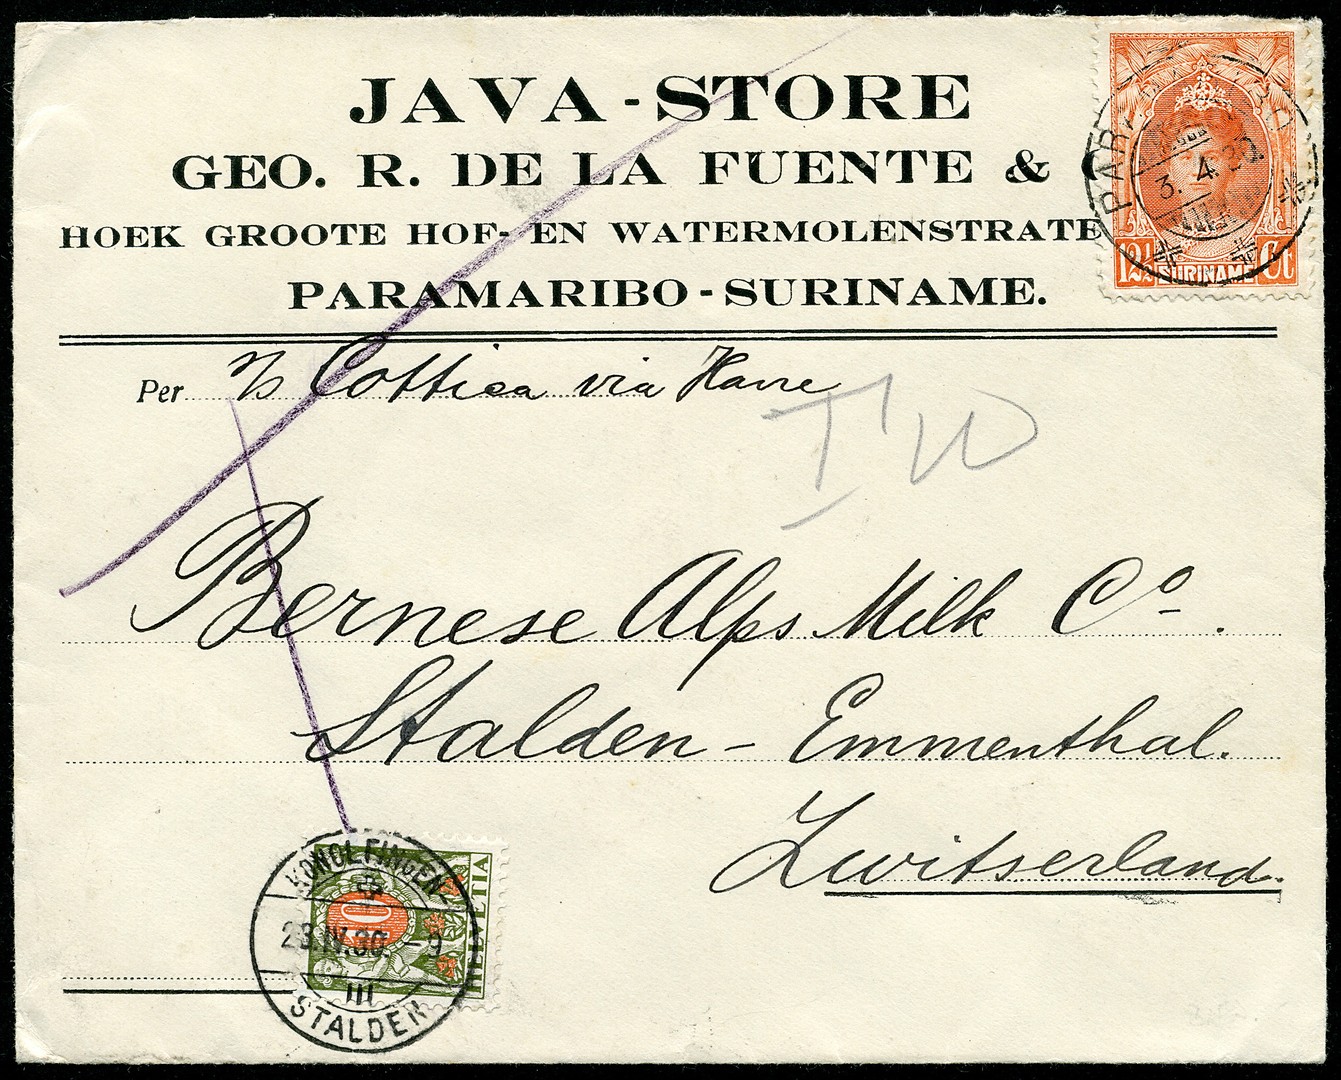 JAVA-STORE
GEO. R. DE LA FUENTE &
HOEK GROOTE HOF- EN WATERMOLENSTRATE
PARAMARIBO-SURINAME.
3.4.30.
12½ SURINAME Ct
Per s/s Cottica via Havre
T
Bernese Alps Milk Co.
Stalden - Emmenthal.
Zwitserland.
KONOLFINGEN
23.IV.30.-9
III
STALDEN
10
HELVETIA